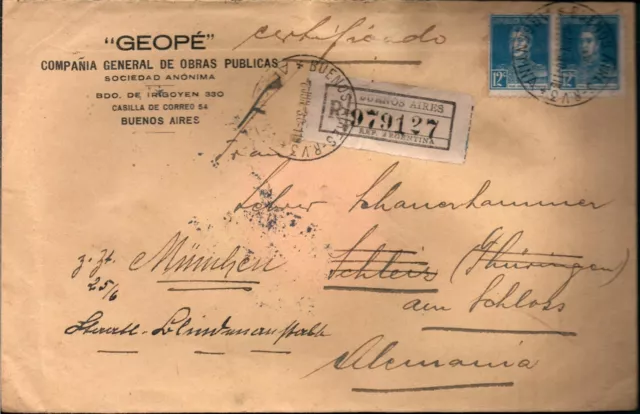 "GEOPÉ"
COMPAÑIA GENERAL DE OBRAS PUBLICAS
SOCIEDAD ANÓNIMA
BDO. DE IRIGOYEN 330
CASILLA DE CORREO 54
BUENOS AIRES
certificado
12
12
BUENOS AIRES
R
979127
REP. ARGENTINA
BUENOS AIRES
Frau
Schauerhammer
z. Zt. München
25/6
Schleiz (Thüringen)
am Schloss
Staatl. Blindenanstalt
Alemania